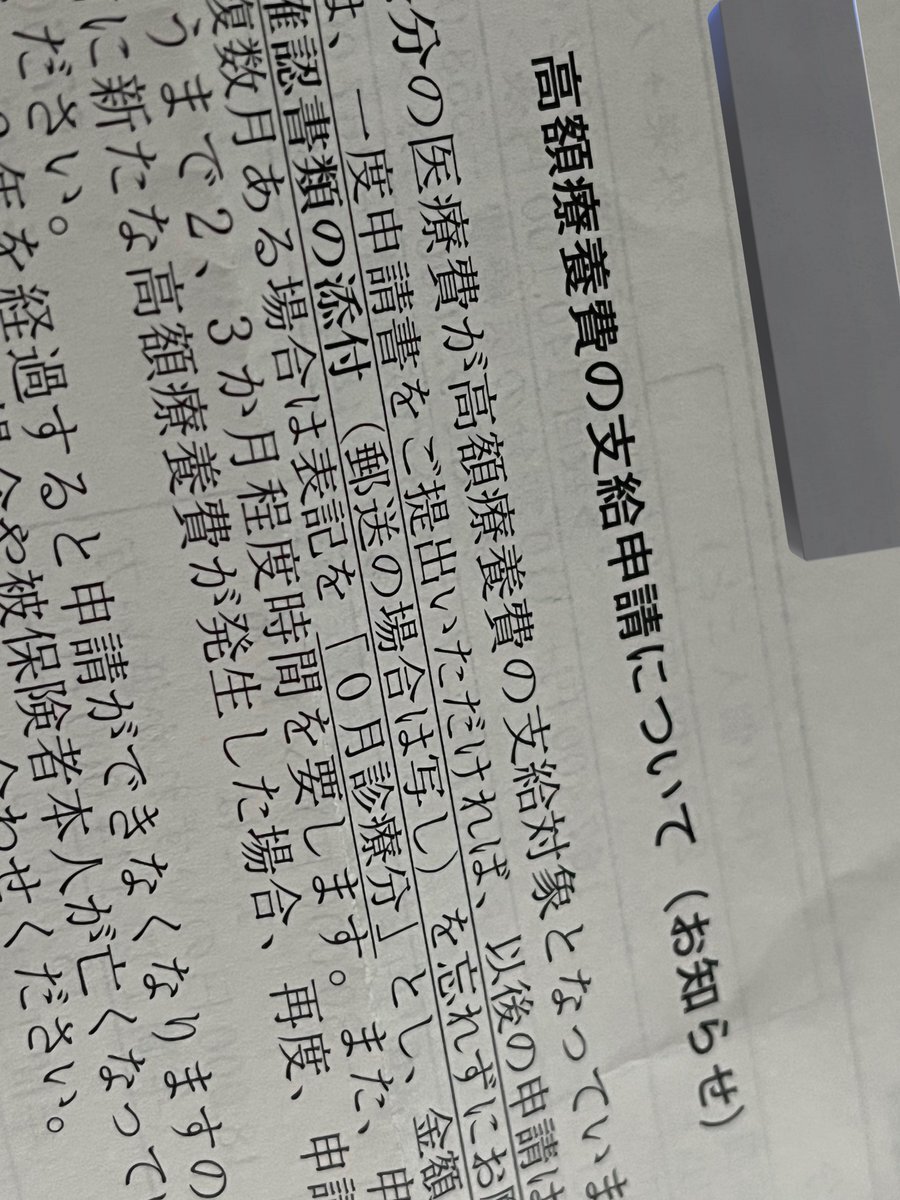 高額療養費の支給申請について（お知らせ）
分の医療費が高額療養費の支給対象となっていま
は、一度申請書をご提出いただければ、以後の申請は
確認書類の添付（郵送の場合は写し）を忘れずにお
複数月ある場合は表記を「０月診療分」とし、金額
うまで２、３か月程度時間を要します。また、申
に新たな高額療養費が発生した場合、再度、申
ださい。
年を経過すると申請ができなくなりますの
場合や被保険者本人が亡くなってい
合わせください。